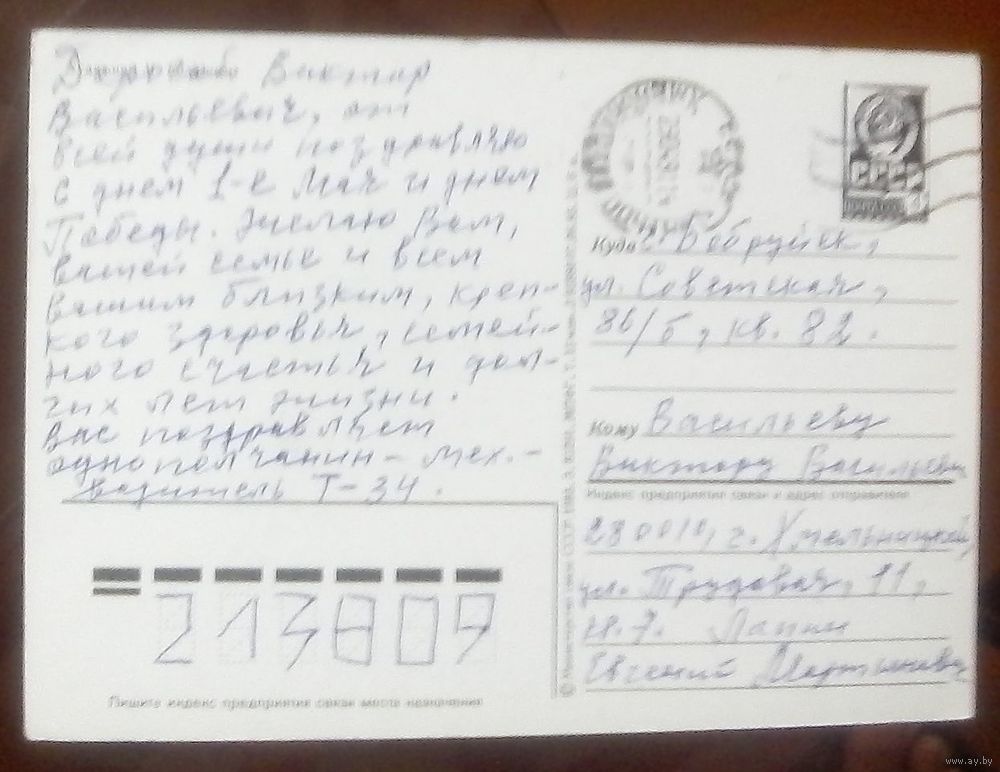 Дорогой Виктор
Васильевич, от
всей души поздравляю
с днем 1-е Мая и днем
Победы. Желаю Вам,
вашей семье и всем
вашим близким, креп-
кого здоровья, семей-
ного счастья и дол-
гих лет жизни.
Вас поздравляет
однополчанин - мех.-
водитель Т-34.
СССР
Куда г. Бобруйск,
ул. Советская,
86/б, кв. 82.
Кому Васильеву
Виктору Васильеви
Индекс предприятия связи и адрес отправителя
280010, г. Хмельницкий,
ул. Трудовая, 11,
Лапин
Евгений Мартынович
213809
Пишите индекс предприятия связи места назначения
www.ay.by